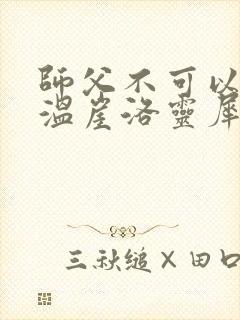 師父不可以
溫崖洛靈犀
三秋縋×田口